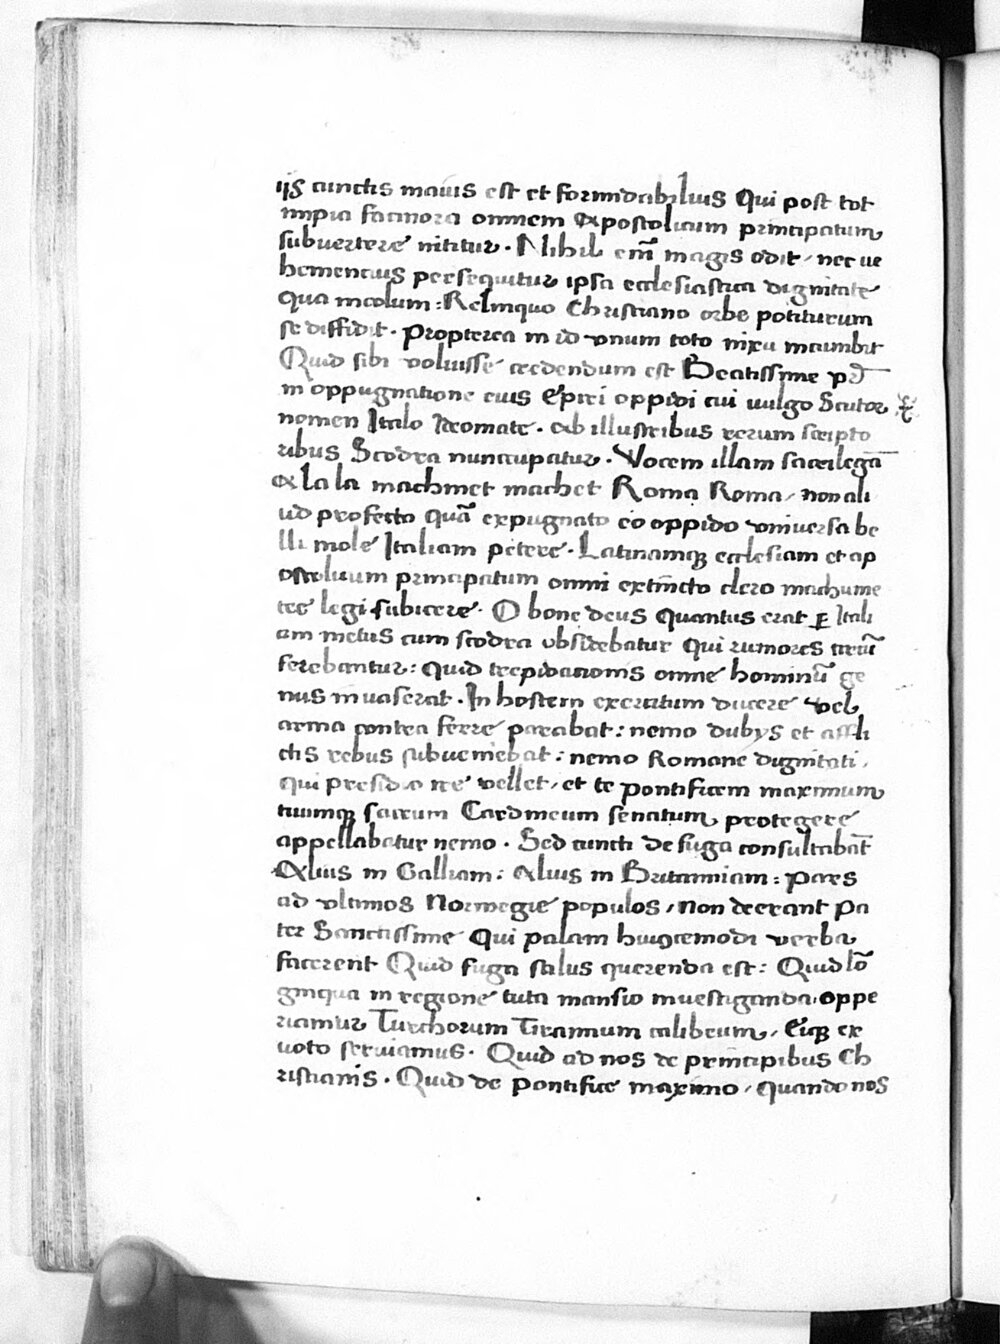 ijs cunctis maius est et formidabilius Qui post tot
impia facinora omnem Apostolicum principatum
subvertere nititur. Nihil em̄ magis odit, nec ve
hementius persequitur ipsa ecclesiastica dignitate
qua incolum: Relinquo Christiano orbe potiturum
se diffidit. Propterea in id vnum toto nixu incumbit
Quid sibi voluisse credendum est Beatissime pr̄
in oppugnatione eius Epiri oppidi cui vulgo Scutor
nomen Italo Idiomate. ab illustribus rerum scripto
ribus Scodra nuncupatur. Vocem illam sacrilegā
Ala la machmet machet Roma Roma, non ali
ud profecto quā expugnato eo oppido vniversa be
lli mole Italiam petere. Latinamqꝫ ecclesiam et ap
ostolicum principatum omni extincto clero machume
tee legi subicere. O bone deus quantus erat ꝑ Itali
am metus cum scodra obsidebatur Qui rumores circū
ferebantur: quid trepidationis omne hominū ge
nus invaserat. In hostem exercitum ducere vel
arma contra ferre parabat: nemo dubijs et affli
ctis rebus subveniebat: nemo Romane dignitati,
qui presidio ire vellet, et te pontificem maximum
tuumqꝫ sacrum Cardineum senatum protegere
appellabatur nemo. Sed cuncti de fuga consultabāt
Alius in Galliam: Alius in Britanniam: pars
ad vltimos Norwegie populos, non deerant Pa
ter Sanctissime Qui palam huiuscemodi verba
facerent Quid fuga salus querenda est: Quid lō
ginqua in regione tuta mansio investiganda, oppe
riamur Turchorum Tirannum calibeum, Eiqꝫ ex
voto serviamus. Quid ad nos de principibus Ch
ristianis. Quid de pontifice maximo, quando nos